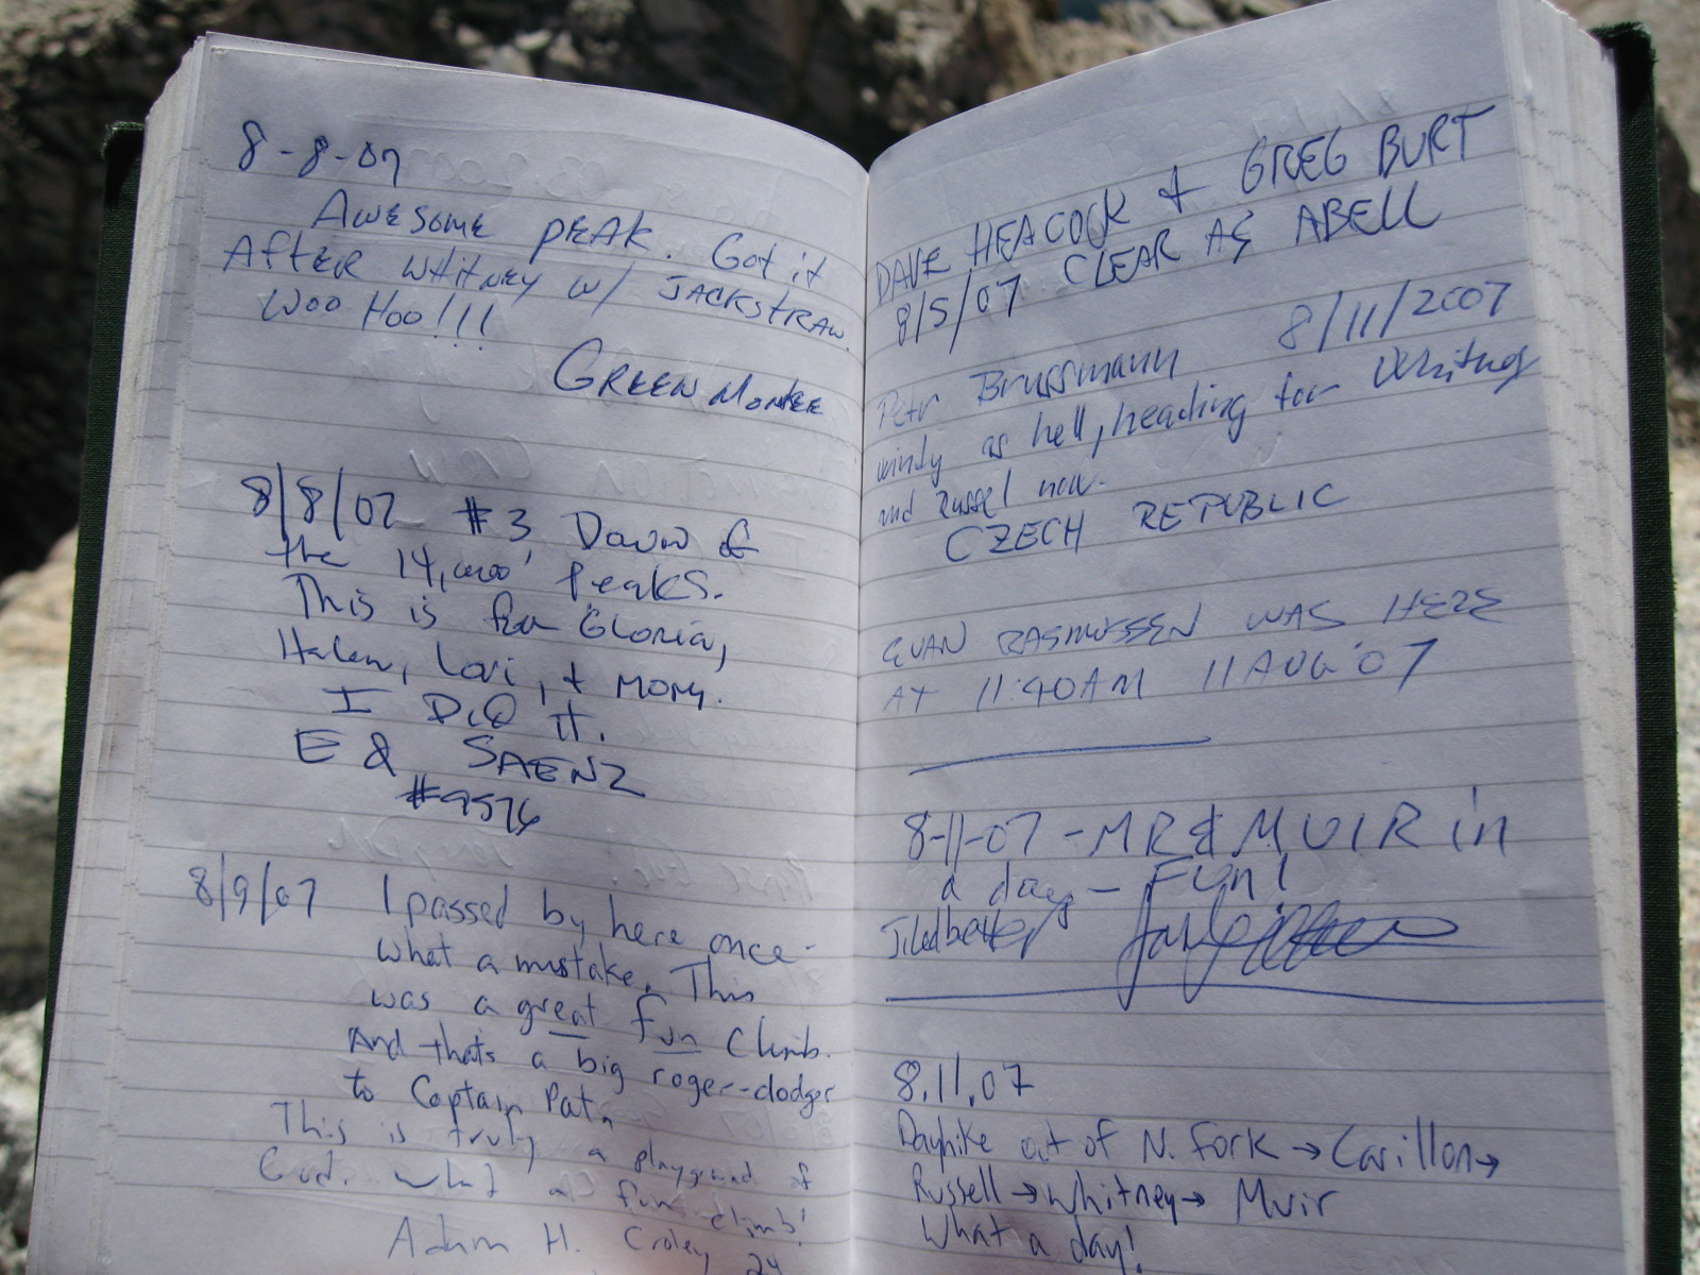 8-8-07
AWESOME PEAK. Got it
AFTER WHITNEY W/ JACKSTRAW.
WOO HOO!!!
GREEN MONKEE
8/8/07 #3 Down of
the 14,000' Peaks.
This is for Gloria,
Helen, Lori, + MOM.
I DID IT.
E & SAENZ
#9576
8/9/07 I passed by here once-
what a mistake. This
was a great fun Climb.
And thats a big roger-dodger
to Captain Pat.
This is truly a playground of
God. What a fun climb!
Adam H. Croley 24
DAVE HEACOCK + GREG BURT
8/5/07 CLEAR AS ABELL
Petr Brussmann 8/11/2007
windy as hell, heading for Whitney
and Russel now.
CZECH REPUBLIC
EVAN RASMUSSEN WAS HERE
AT 11:40AM 11 AUG '07
8-11-07 - MR & MUIR in
a day - FUN!
Jiledbetter
8.11.07
Dayhike out of N. Fork → Carillon →
Russell → Whitney → Muir
What a day!